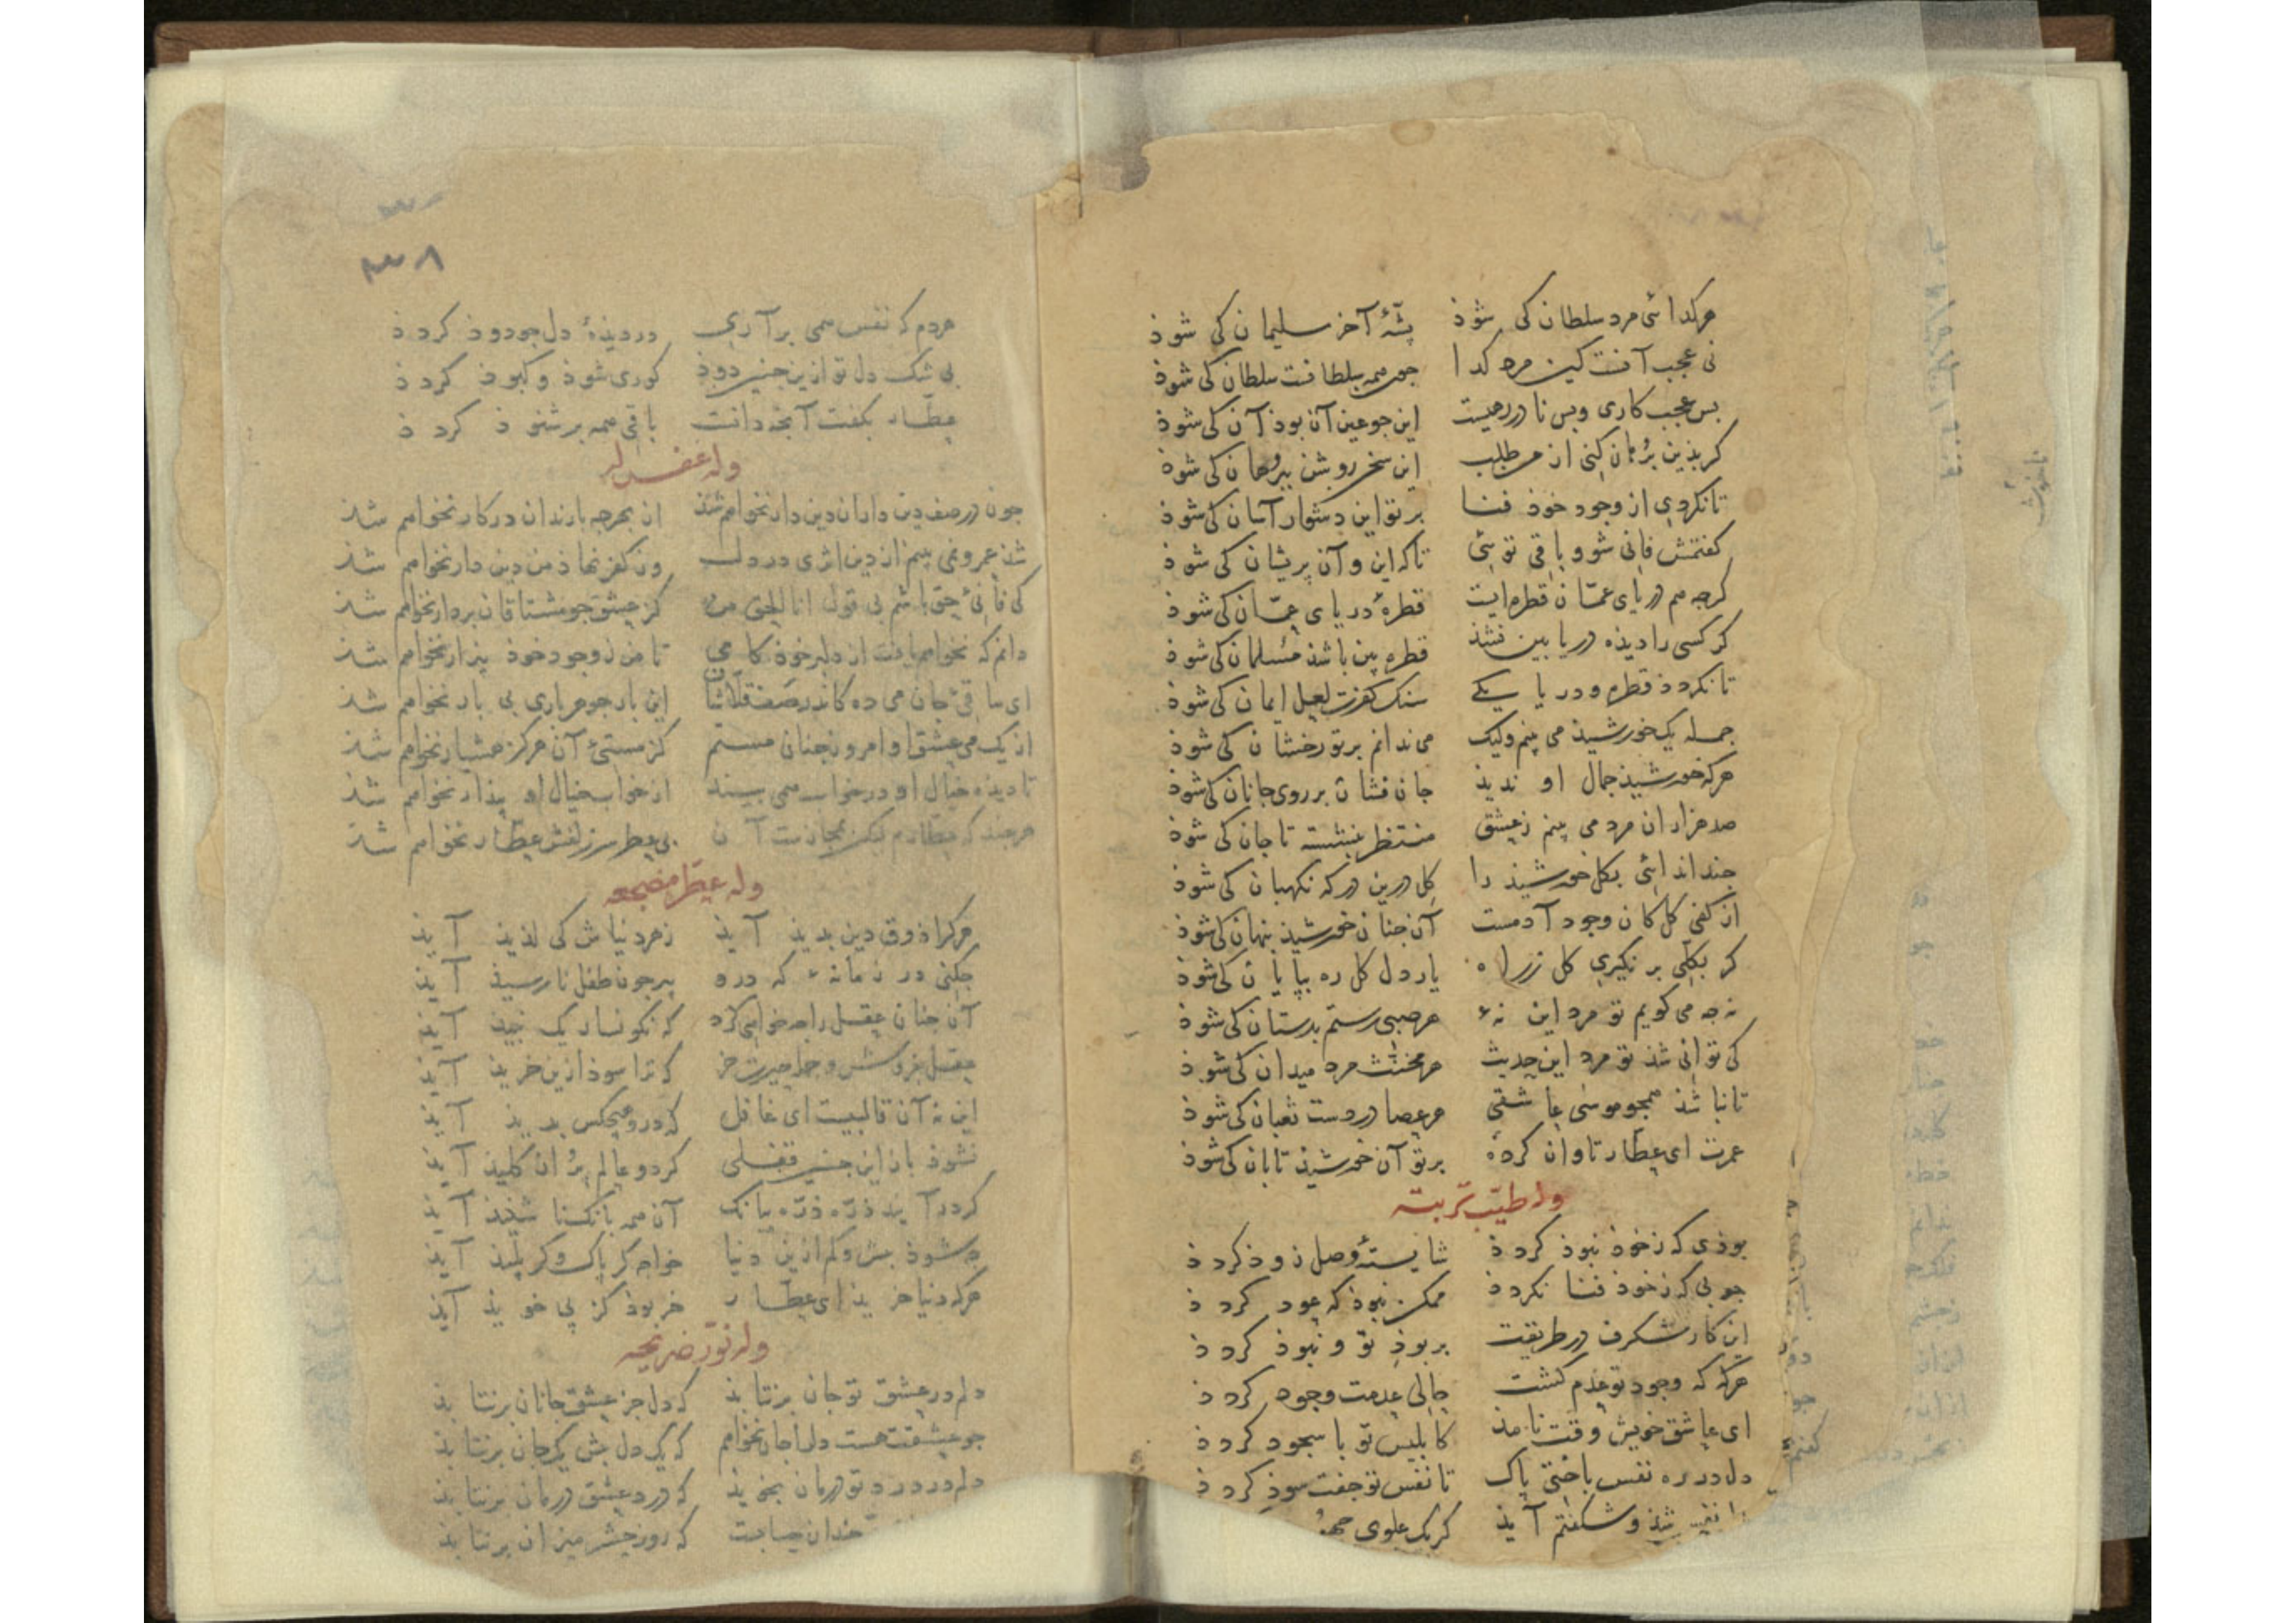 هرکدائی مرد سلطان کی شوذ پشّهٔ آخر سلیمان کی شوذ
نی عجب آنست کین مرد کدا جون همه سلطانست سلطان کی شوذ
بس عجب کاری و بس نادر رهیست این جو عین آن بوذ آن کی شوذ
کر بذین برهان کنی از من طلب این سخن روشن ببرهان کی شوذ
تا نکردی از وجود خوذ فنا بر تو این دشوار آسان کی شوذ
کفتمش فانی شو و باقی توئی تا که این و آن پریشان کی شوذ
کرجه هم دریای عمّان قطره ایست قطرهٔ دریای عمّان کی شوذ
کر کسی را دیذه دریا بین نشذ قطره بین باشذ مسلمان کی شوذ
تا نکردد قطره و دریا یکی سنک کفرت لعل ایمان کی شوذ
جمله یک خورشیذ می بینم ولیک می ندانم بر تو رخشان کی شوذ
هرکه خورشیذ جمال او ندیذ جان فشان بر روی جانان کی شوذ
صد هزاران مرد می بینم ز عشق منتظر بنشسته تا جان کی شوذ
جند اندائی بکل خورشیذ را کل درین درکه نکهبان کی شوذ
از کفی کل کان وجود آدمست آن جنان خورشیذ پنهان کی شوذ
کر بکلّی بر نکیری کل ز راه یار دل کل ره بپایان کی شوذ
نه جه می کویم تو مرد این نهٔ هر صبی رستم بدستان کی شوذ
کی توانی شذ تو مرد این حدیث هر مخنّث مرد میدان کی شوذ
تا نباشذ همجو موسی عاشقی هر عصا در دست ثعبان کی شوذ
عمرت ای عطّار تاوان کردهٔ بر تو آن خورشیذ تابان کی شوذ
وله طیّب تربته
بوذی که ز خوذ نبوذ کردذ شایستهٔ وصل زوذ کردذ
جوبی که ز خوذ فنا نکردذ ممکن نبوذ که عود کردذ
این کار شکرف در طریقت بر بوذ تو و نبوذ کردذ
هرکه که وجود تو عدم کشت حالی عدمت وجود کردذ
ای عاشق خویش وقت نامذ کابلیس تو با سجود کردذ
دل در ره نفس باختی پاک تا نفس تو جفت سوذ کردذ
شذ و شکفتم آیذ کر یک علوی
٣٣٨
هردم که نفس همی برآری در دیذهٔ دل جو دوذ کردذ
بی شک دل تو ازین جنین دوذ کوری شوذ و کبوذ کردذ
عطّار بکفت آنجه دانست باقی همه بر شنوذ کردذ
وله غفر له
جون در صف دین داران دین دار نخواهم شذ از بهر جه با رندان در کار نخواهم شذ
شذ عمر و نمی بینم از دین اثری در دل وز کفر نهاذ من دین دار نخواهم شذ
کی فانیٔ حق باشم بی قول انا الحق من کز عشق جو مشتاقان بر دار نخواهم شذ
دانم که نخواهم یافت از دلبر خوذ کامی تا من ز وجود خوذ بیزار نخواهم شذ
ای ساقیٔ جان می ده کاندر صف قلّاشان این بار جو هر باری بی بار نخواهم شذ
از یک می عشق او امروز جنان مستم کز مستیٔ آن هرکز هشیار نخواهم شذ
تا دیذه خیال او در خواب همی بیند از خواب خیال او بیذار نخواهم شذ
هرجند که عطّارم لیکن بمجازست آن بی عطر سر زلفش عطّار نخواهم شذ
وله عطّر مضجعه
هرکرا ذوق دین بدیذ آیذ زهر دنیاش کی لذیذ آیذ
جکنی در زمانهٔ که درو پیر جون طفل نارسیذ آیذ
آن جنان عقل را جه خواهی کرد که نکونسار یک نبیذ آیذ
عقل بفروش و جمله حیرت خر که ترا سوذ ازین خریذ آیذ
این نه آن قالبیست ای غافل که درو هیجکس بدیذ آیذ
نشوذ باز این جنین قفلی کر دو عالم پر از کلیذ آیذ
کر درآیند ذرّه ذرّه ببانک آن همه بانک ناشنیذ آیذ
جه شوذ بیش و کم ازین دنیا خواه کر پاک و کر پلیذ آیذ
هرکه دنیا خریذ ای عطّار خر بوذ کز پی خویذ آیذ
وله نوّر ضریحه
دلم در عشق تو جان برنتابذ که دل جز عشق جانان برنتابذ
جو عشقت هست دلرا جان نخواهم که یک دل بیش یک جان برنتابذ
دلم در درد تو درمان نجویذ که درد عشق درمان برنتابذ
جندان حسابست که روز حشر میزان برنتابذ